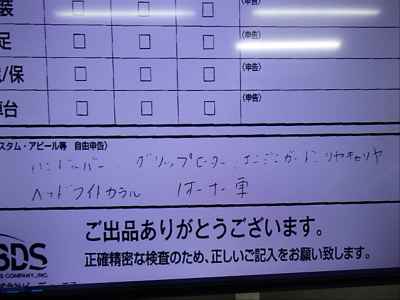 装 □ □ □ (申告)
足 □ □ □ (申告)
/保 □ □ □ (申告)
車台 □ □ □ (申告)
スタム・アピール等 自由申告)
ハンドルバー グリップヒーター エンジンガード リヤキャリヤ
ヘッドライトカウル 1オーナー車
ご出品ありがとうございます。
SDS 正確精密な検査のため、正しいご記入をお願い致します。
S COMPANY,INC.